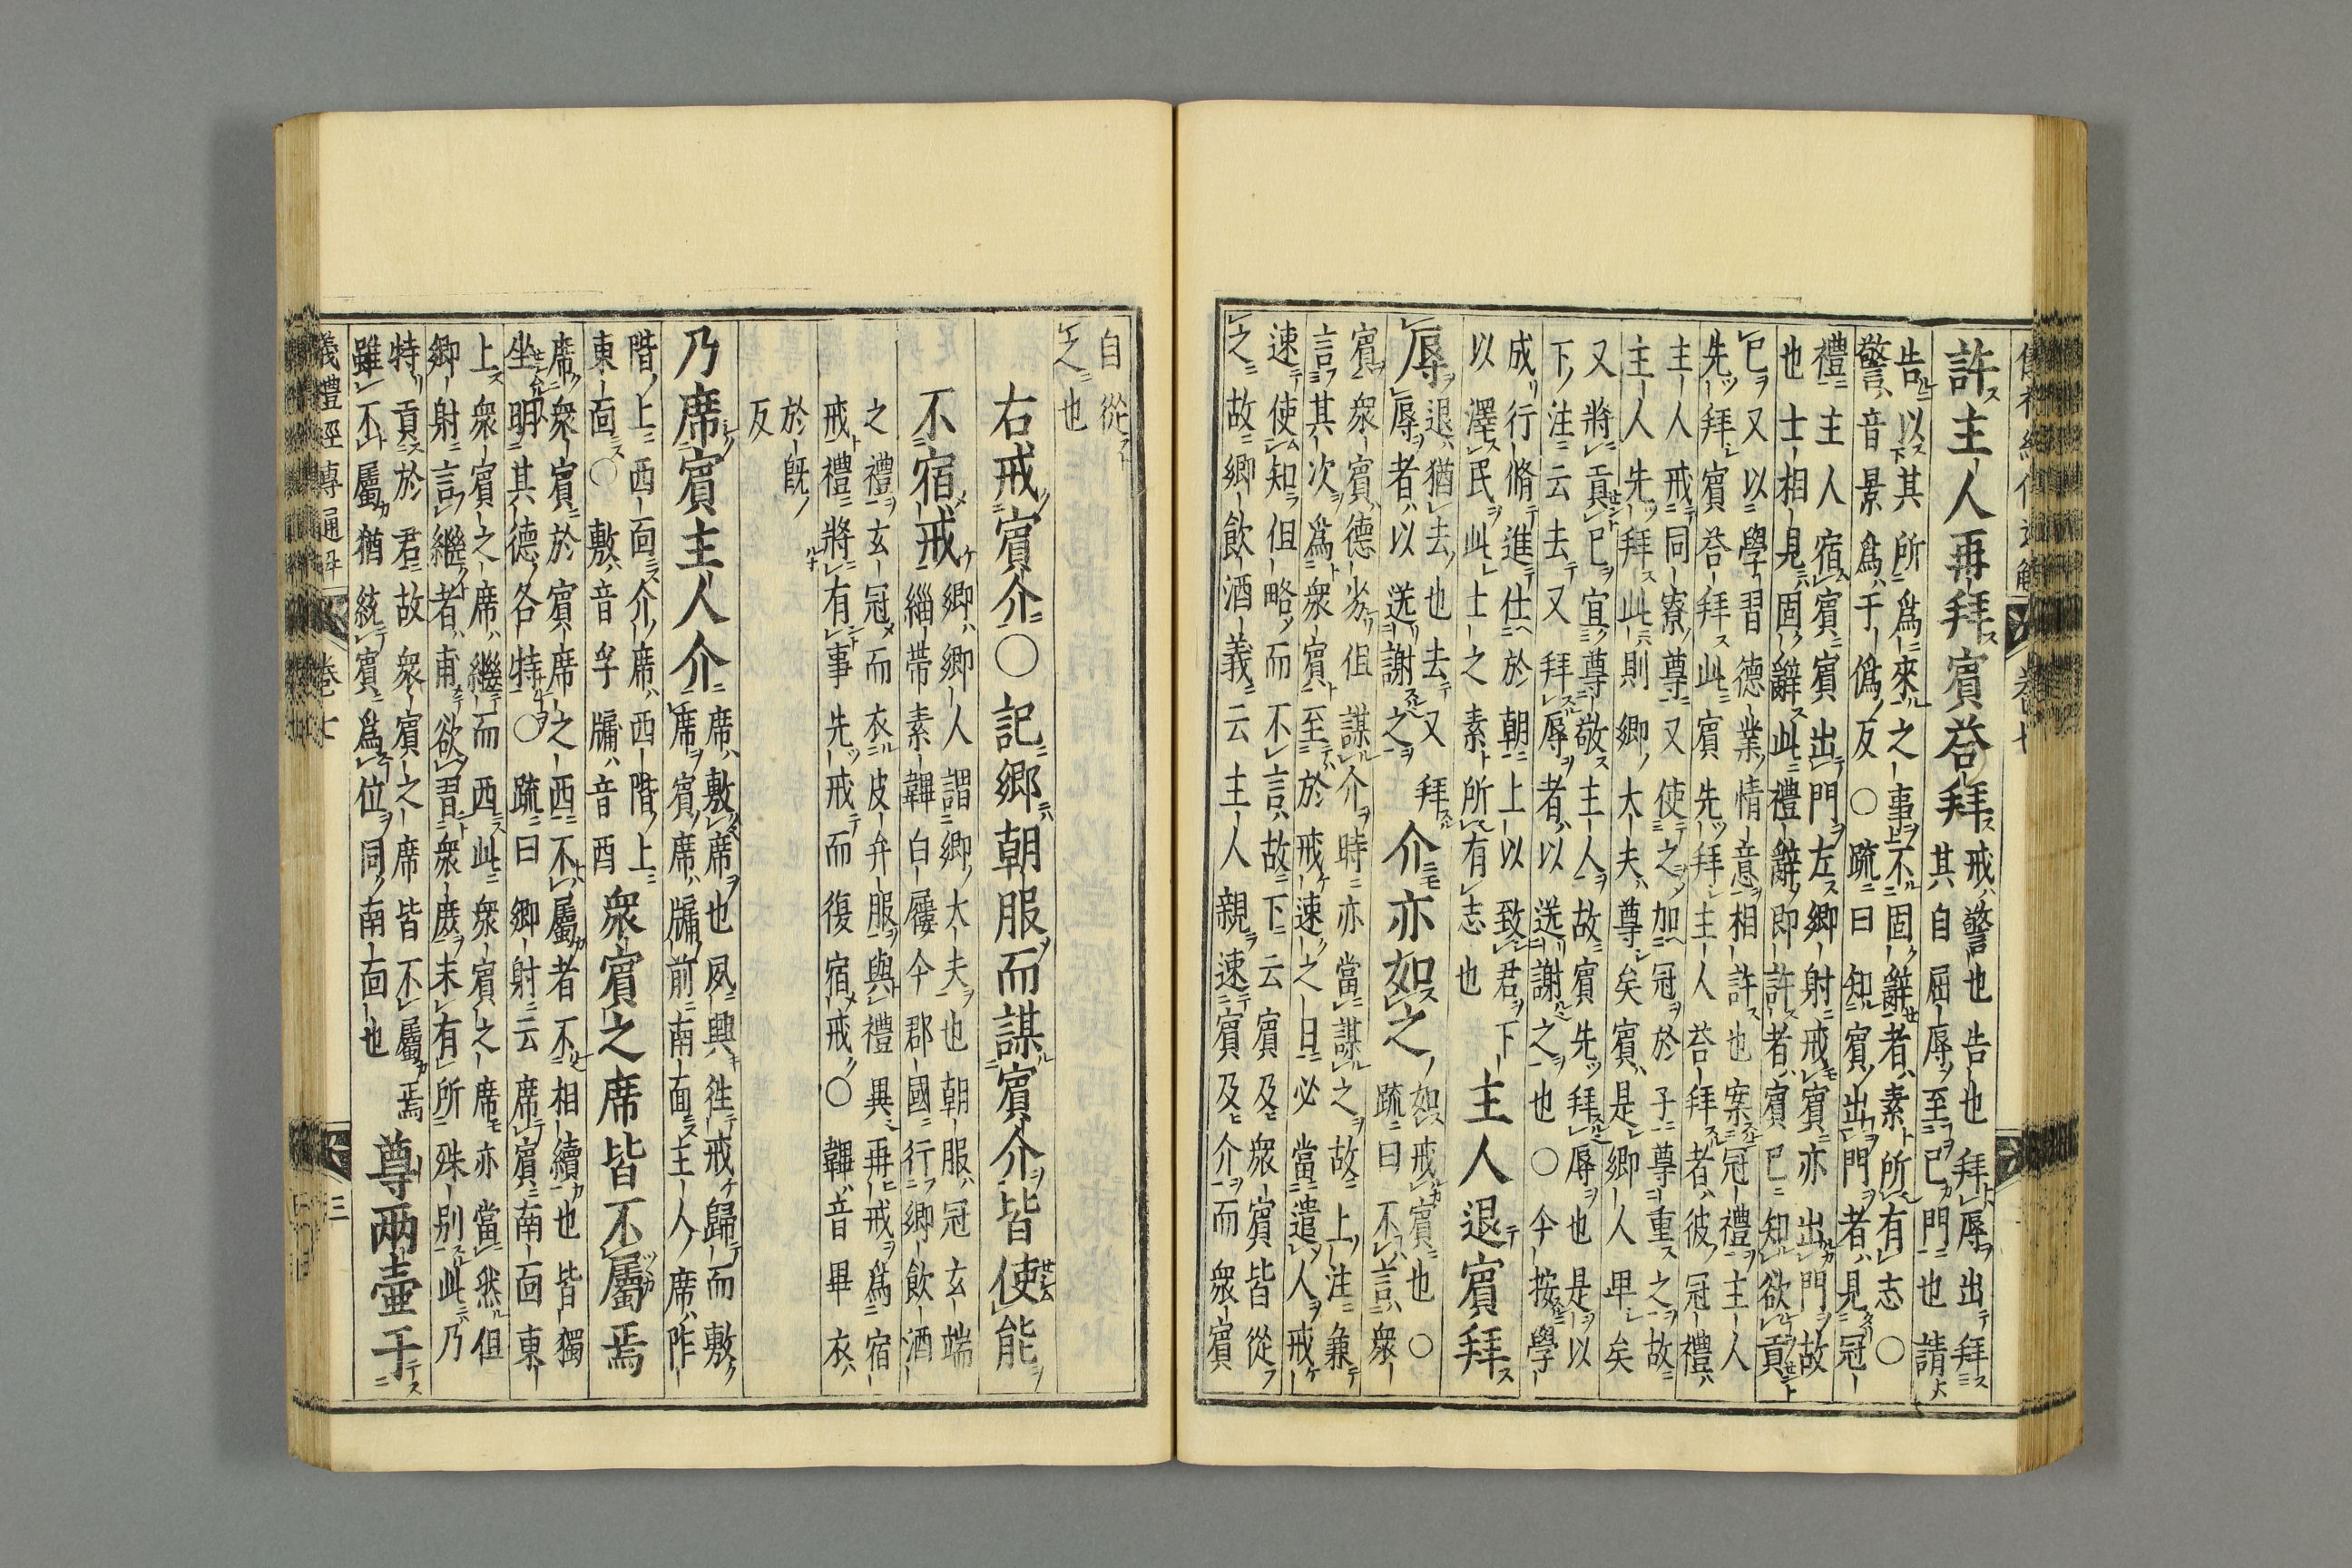 儀禮經傳通解 卷七
許主人再拜賓荅拜 戒警也告也拜辱出拜
其自屈辱至己門也請
告以其所爲來之事不固辭者素所有志〇
警音景爲于僞反〇疏曰知賓出門者見冠
禮主人宿賓賓出門左鄉射戒賓亦出門故
也士相見固辭此禮辭即許者賓已知欲貢
已又以學習德業情意相許也案冠禮主人
先拜賓荅拜此賓先拜主人荅拜者彼冠禮
主人戒同寮尊又使之加冠於子尊重之故
主人先拜此則鄉大夫尊矣賓是鄉人卑矣
又將貢已宜尊敬主人故賓先拜辱也是以
下注云去又拜辱者以送謝之也〇今按學
成行脩進仕於朝上以致君下
以澤民此士之素所有志也
主人退賓拜
辱
退猶去也去又拜
辱者以送謝之
介亦如之
如戒賓也〇
疏曰不言衆
賓衆賓德劣但謀介時亦當謀之故上注兼
言其次爲衆賓至於戒速之日必當遣人戒
速使知但略而不言故下云賓及衆賓皆從
之故鄉飲酒義云主人親速賓及介而衆賓
自從
之也
右戒賓介〇記鄉朝服而謀賓介皆使能
不宿戒
鄉鄉人謂鄉大夫也朝服冠玄端
緇帶素韠白屨今郡國行鄉飲酒
之禮玄冠而衣皮弁服與禮異再戒爲宿
戒禮將有事先戒而復宿戒〇韠音畢衣
於既
反
乃席賓主人介
席敷席也夙興往戒歸而敷
席賓席牖前南面主人席阼
階上西面介席西階上
東面〇敷音孚牖音酉
衆賓之席皆不屬焉
席衆賓於賓席之西不屬者不相續也皆獨
坐明其德各特〇疏曰鄉射云席賓南面東
上衆賓之席繼而西此衆賓之席亦當然但
鄉射言繼者甫欲習衆庶未有所殊別此乃
特貢於君故衆賓之席皆不屬焉
雖不屬猶統賓爲位同南面也
尊兩壺于
儀禮經傳通解 卷七 三